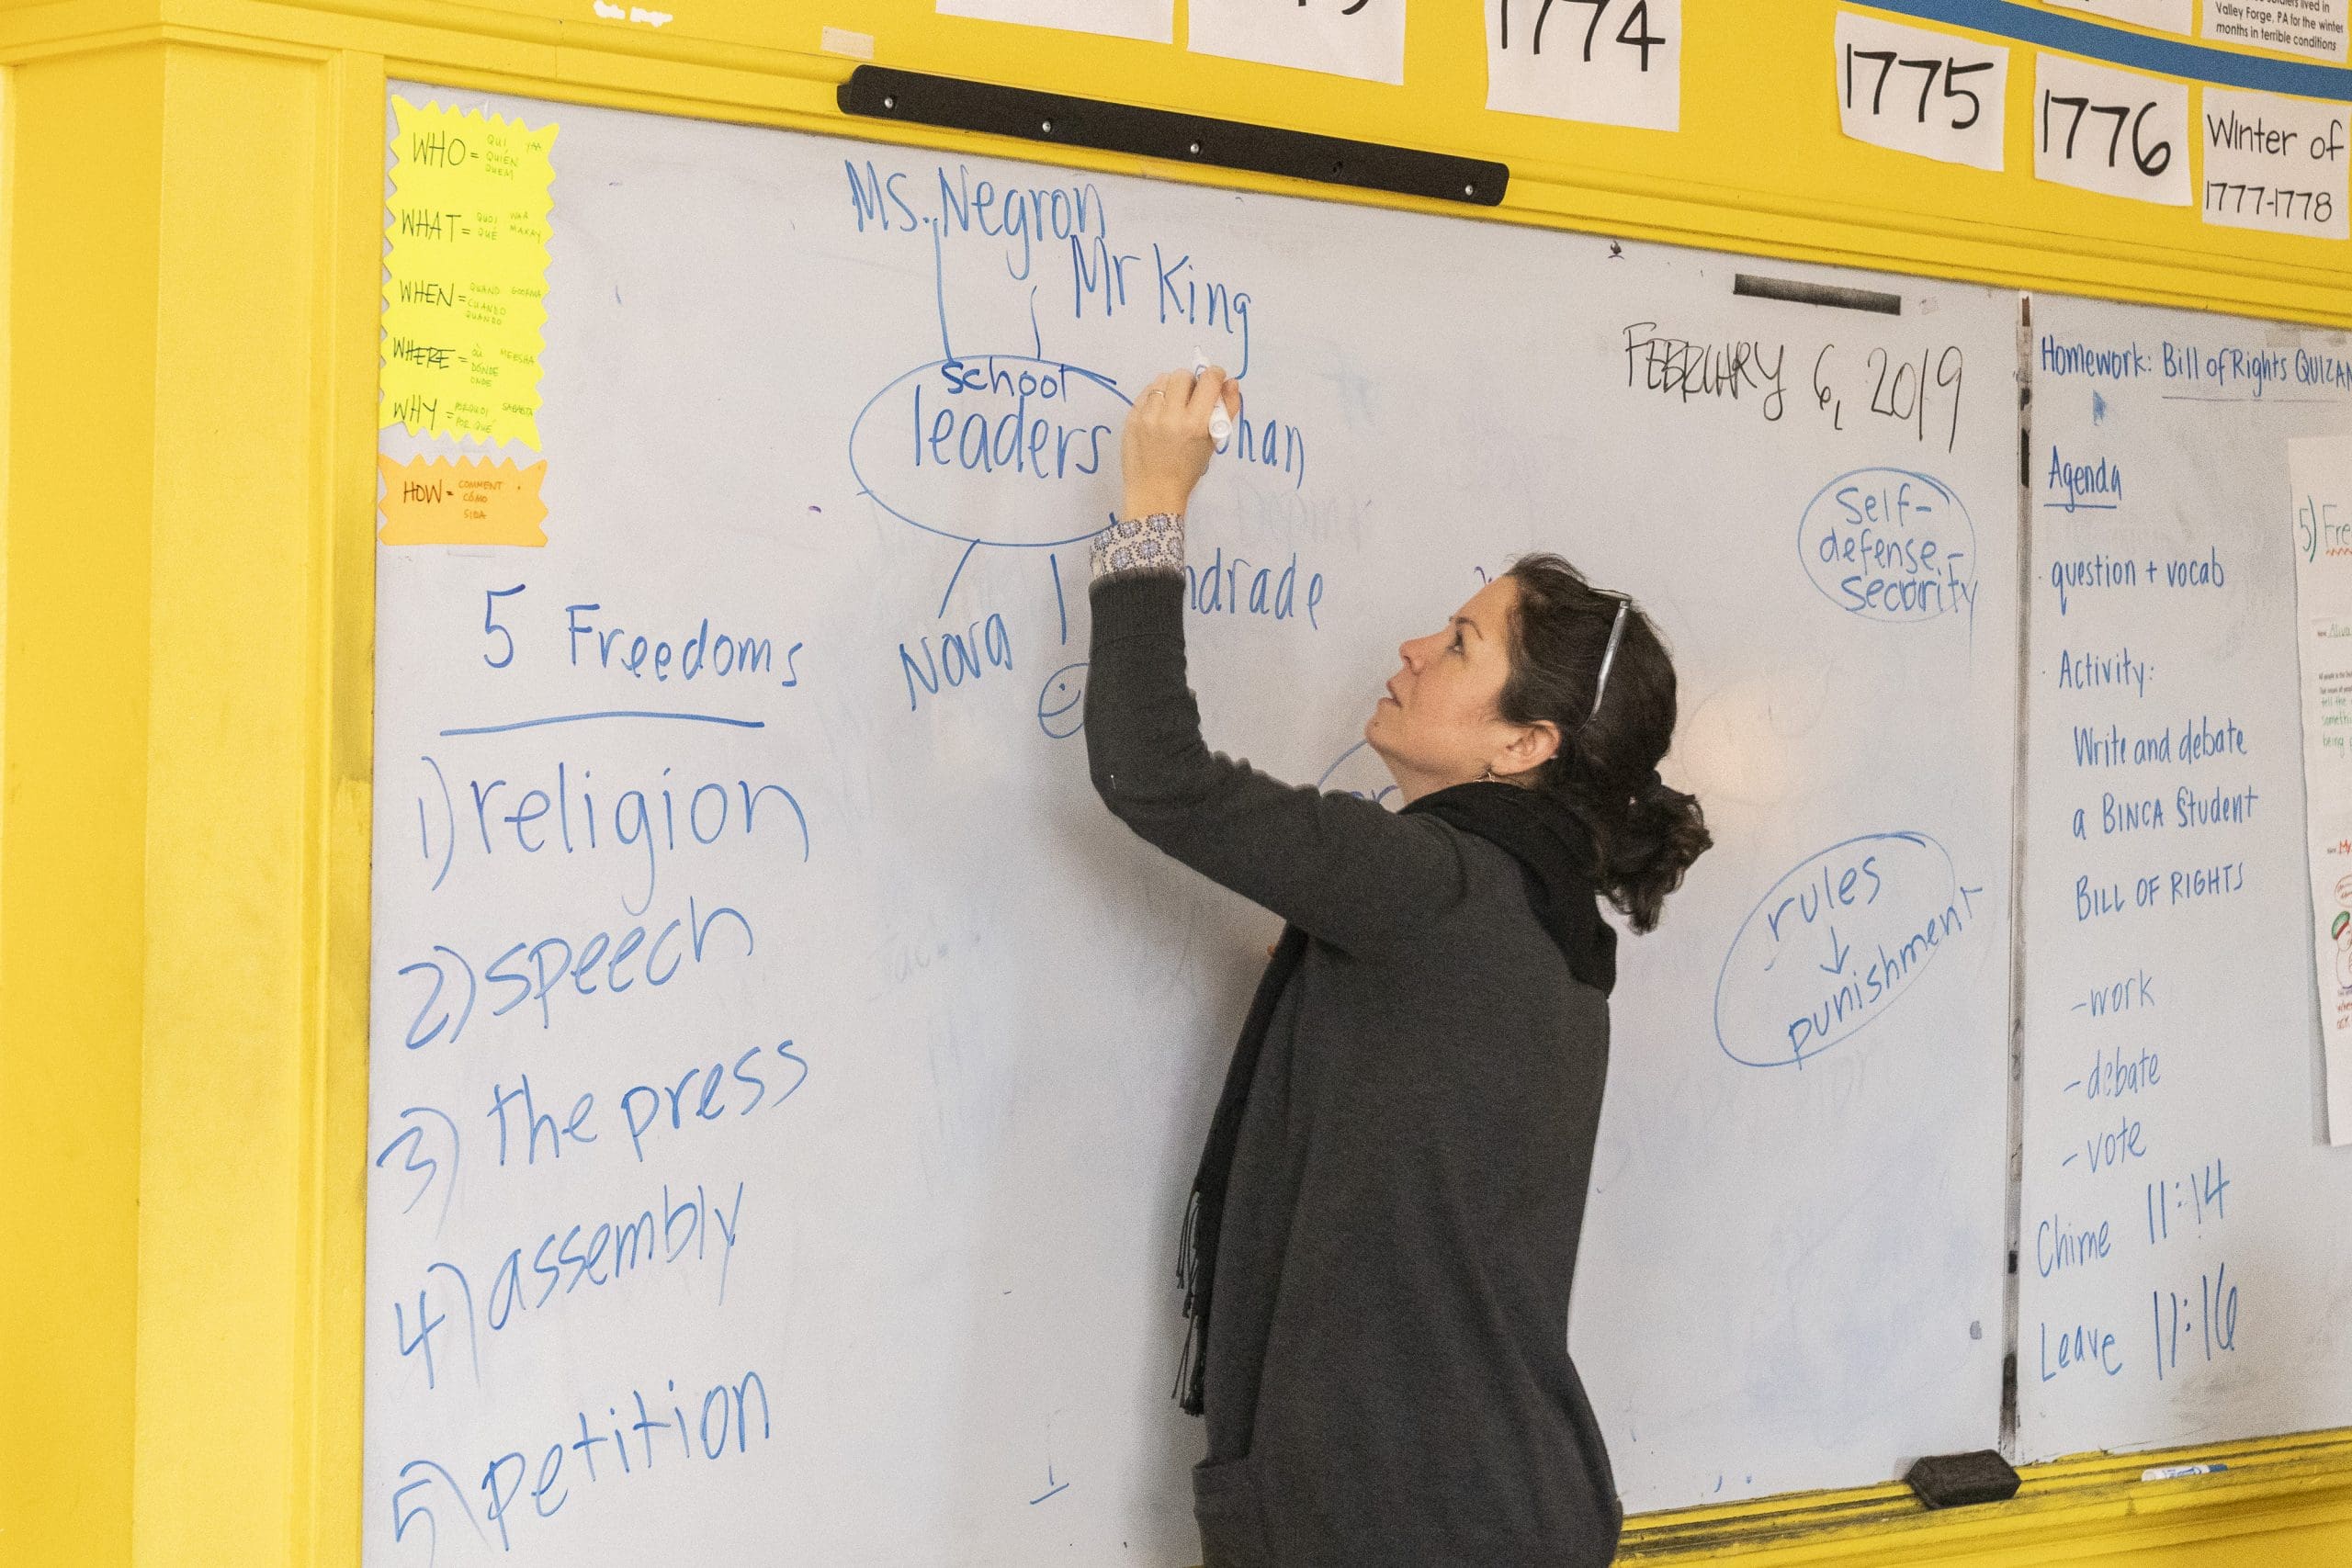 1774
1775
1776
Winter of
1777-1778
lived in
Valley Forge, PA for the winter
months in terrible conditions
WHO = QUI YAA
QUIÉN
QUEM
WHAT = QUOI WAA
QUÉ MAXAY
WHEN = QUAND GOORMA
CUANDO
QUANDO
WHERE = OÙ MEESHA
DÓNDE
ONDE
WHY = POURQUOI SABABTA
POR QUÉ
HOW = COMMENT
CÓMO
SIDA
Ms. Negron
Mr King
school
leaders
han
ndrade
Nova
5 Freedoms
1) religion
2) speech
3) the press
4) assembly
5) petition
FEBRUARY 6, 2019
Self-
defense-
security
rules
↓
punishment
Homework: Bill of Rights
Agenda
· question + vocab
· Activity:
Write and debate
a BINCA Student
BILL OF RIGHTS
- work
- debate
- vote
Chime 11:14
Leave 11:16
5) Fre